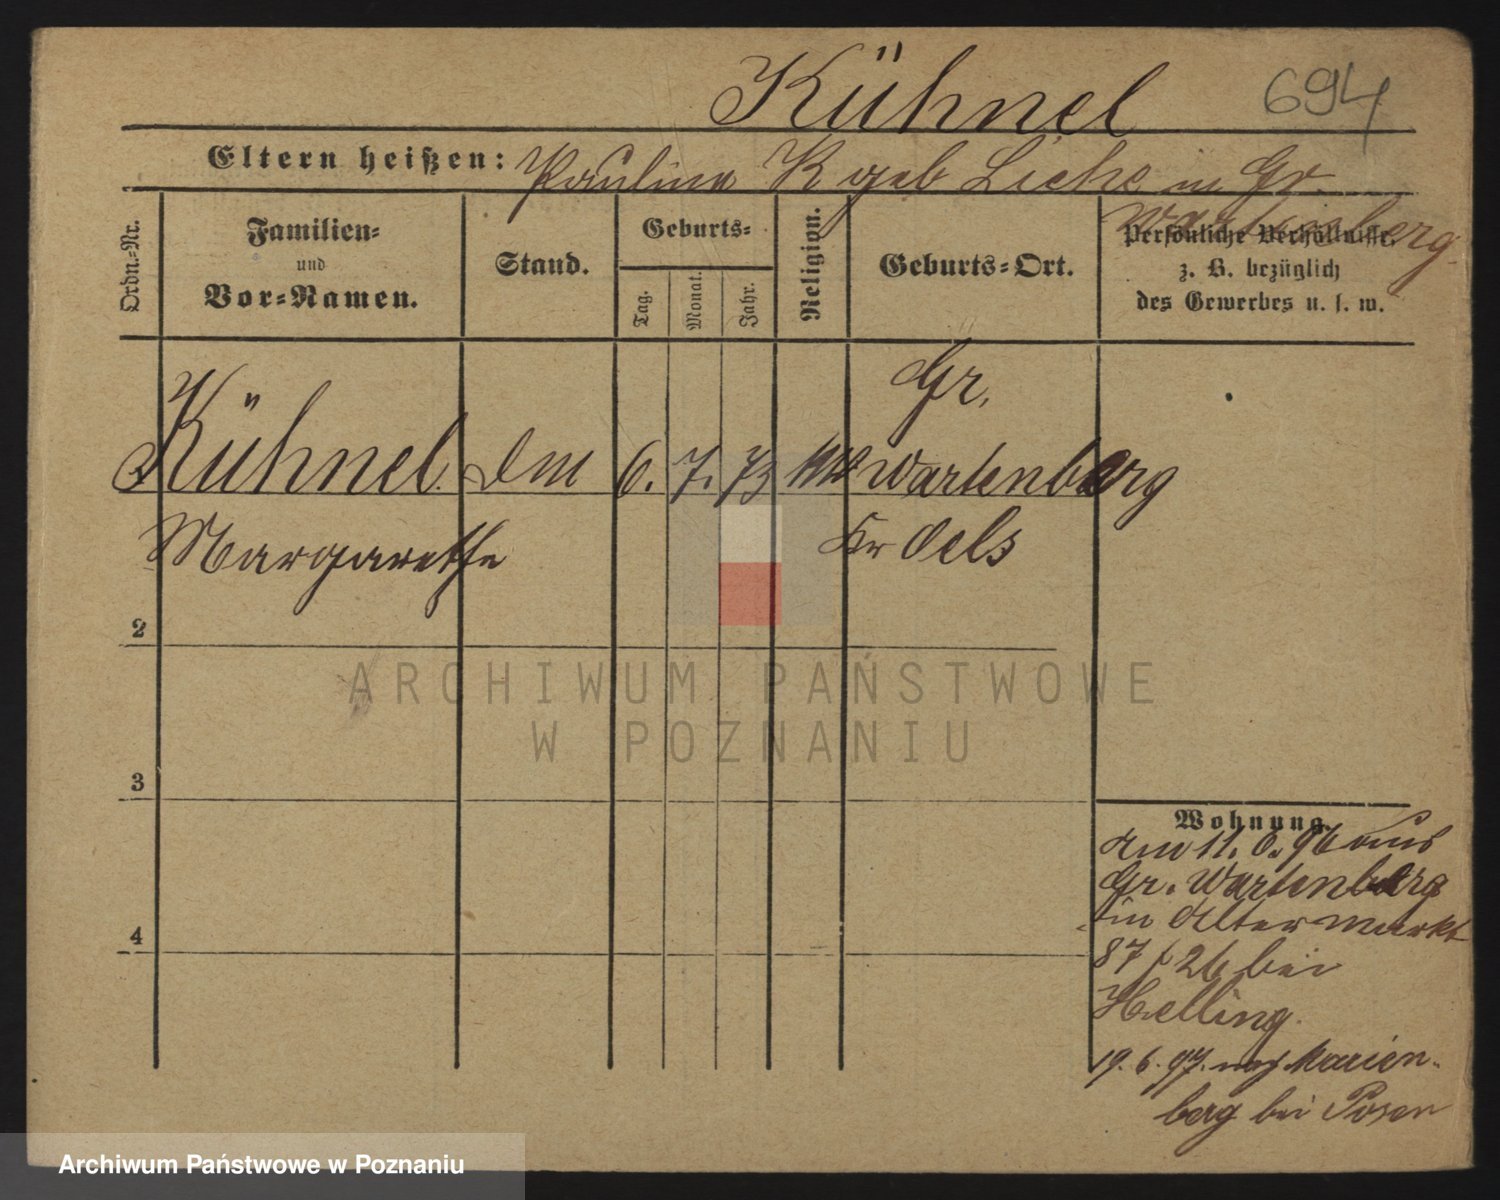 Kühnel 694
Eltern heißen: Paulina K geb Liehr in Gr.
Wartenberg
Ordn.-Nr.
Familien-
und
Vor-Namen.
Stand.
Geburts-
Tag.
Monat.
Jahr.
Religion.
Geburts-Ort.
Persönliche Verhältnisse,
z. B. bezüglich
des Gewerbes u. s. w.
Gr.
Kühnel 6. 7. 73 Wartenberg
Margarethe Kr Oels
2
3
4
Wohnung.
am 11. 6. 96 aus
Gr. Wartenberg
in Alter markt
87 / 26 bei
Helling.
19. 6. 97. nach Marien-
berg bei Posen
ARCHIWUM PAŃSTWOWE
W POZNANIU
Archiwum Państwowe w Poznaniu